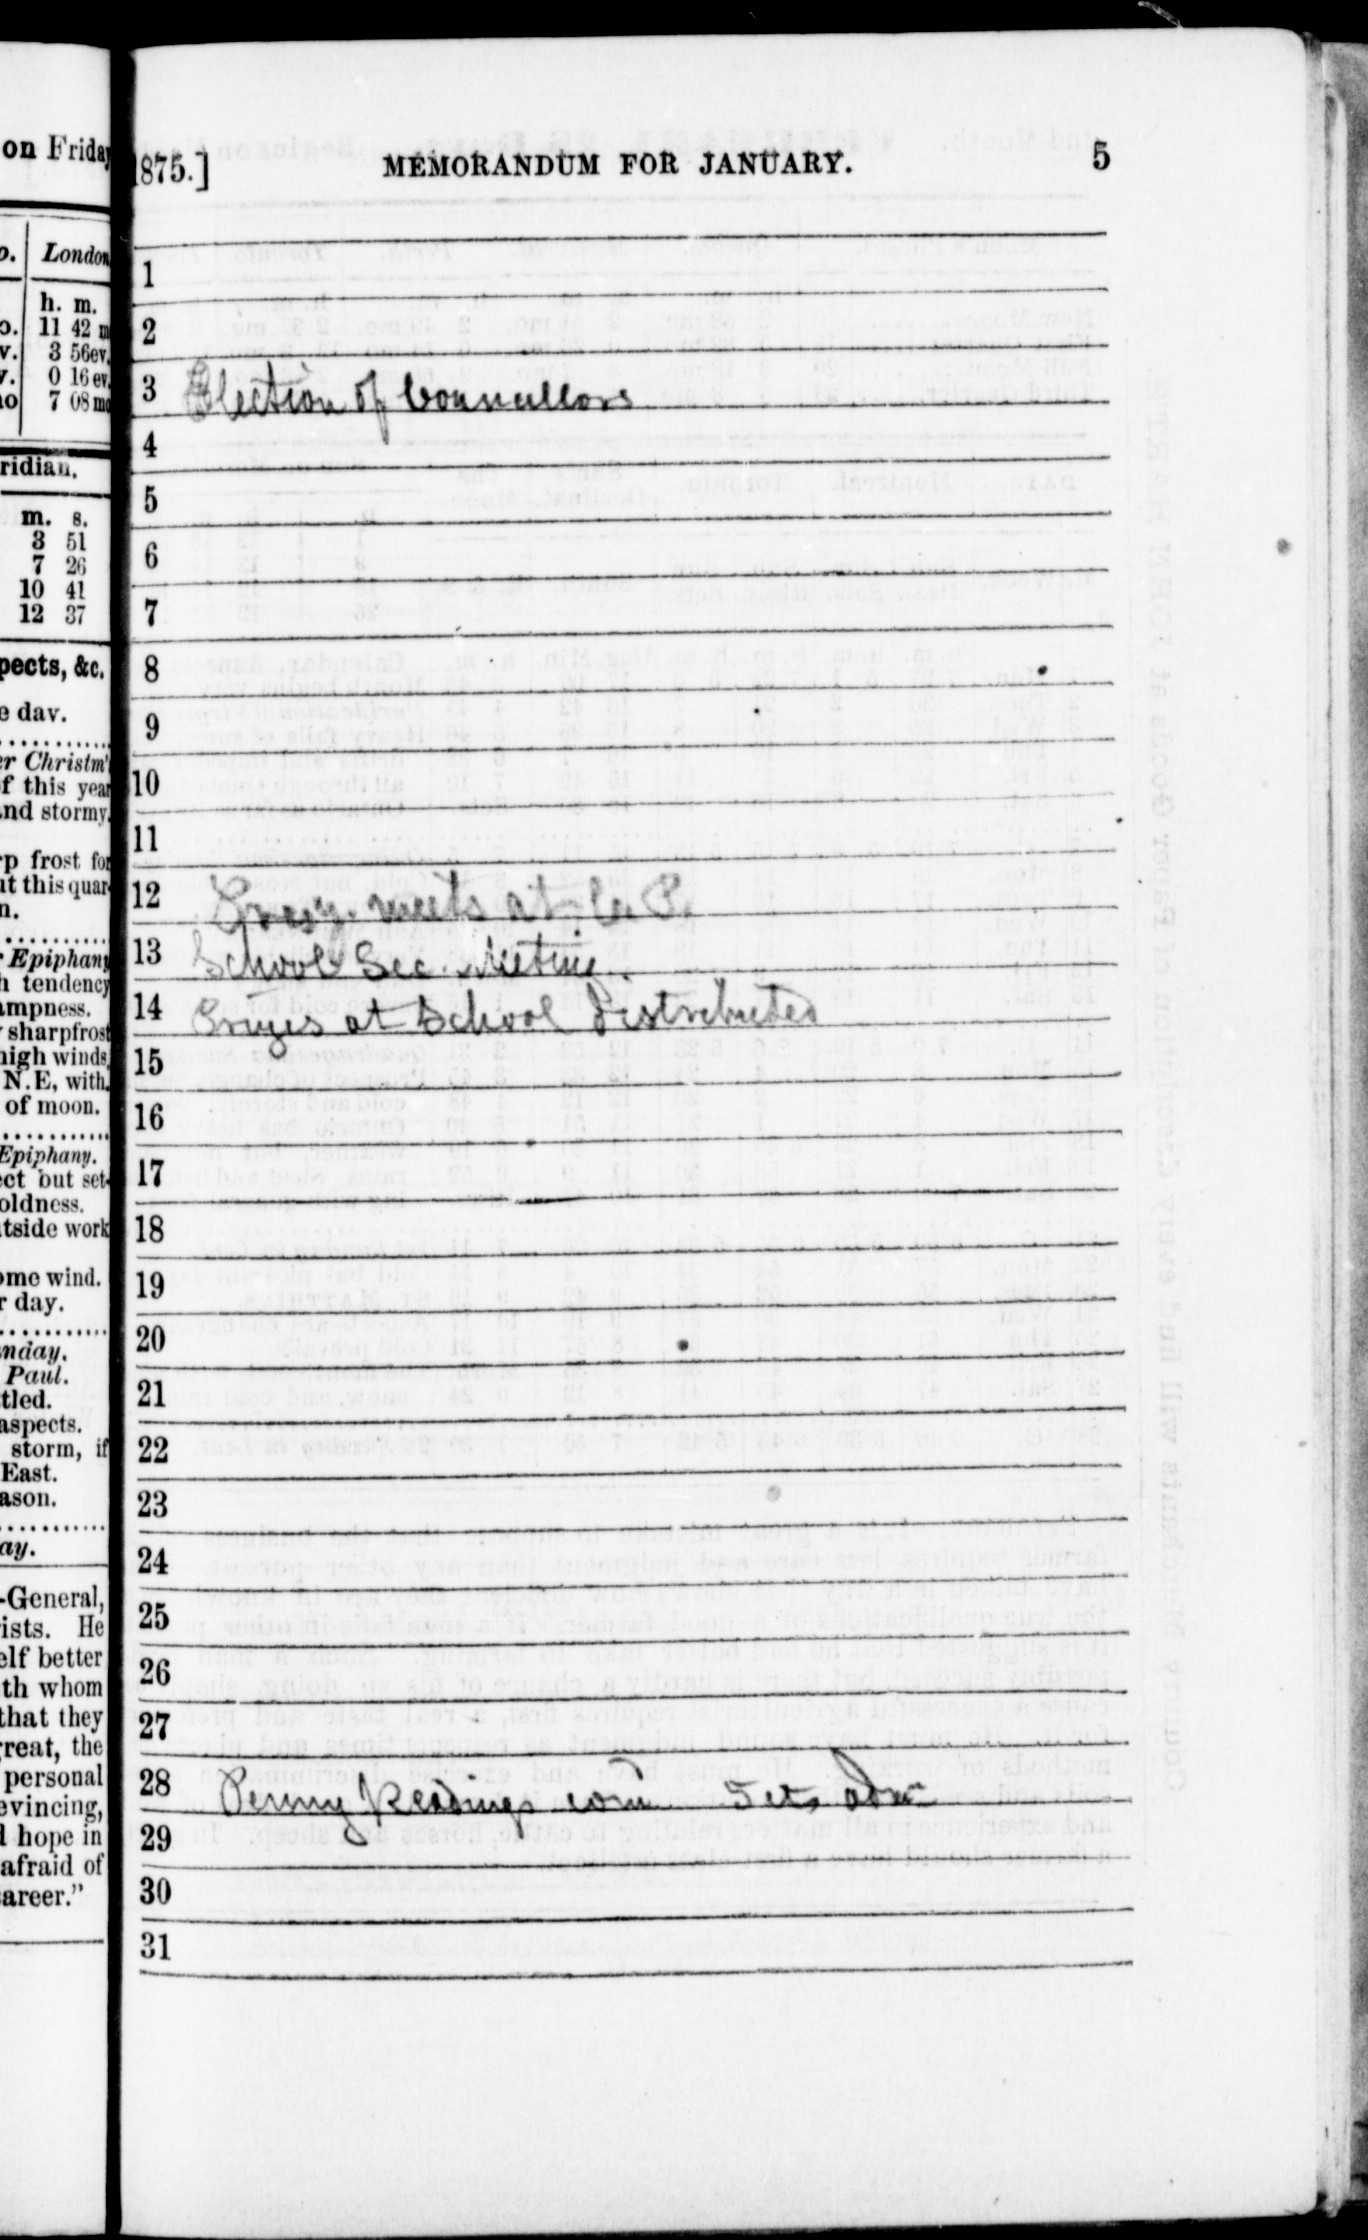 on Friday
o. London
h. m.
o. 11 42 m
v. 3 56ev.
v. 0 16 ev.
no 7 08 mo
ridian.
m. s.
3 51
7 26
10 41
12 37
pects, &c.
e day.
er Christm'
of this year
and stormy.
rp frost for
at this quar-
n.
r Epiphany
h tendency
ampness.
sharpfrost
high winds,
N.E, with
of moon.
Epiphany.
ect but set-
oldness.
tside work
ome wind.
r day.
nday.
Paul.
tled.
aspects.
storm, if
East.
ason.
ay.
-General,
ists. He
elf better
th whom
that they
reat, the
personal
evincing,
l hope in
afraid of
career."
1875.] MEMORANDUM FOR JANUARY. 5
1
2
3 Election of Councillors
4
5
6
7
8
9
10
11
12 meets at
13 School Sec. Meeting
14 Prizes at School distributed
15
16
17
18
19
20
21
22
23
24
25
26
27
28 Penny Readings 5 cts adm
29
30
31